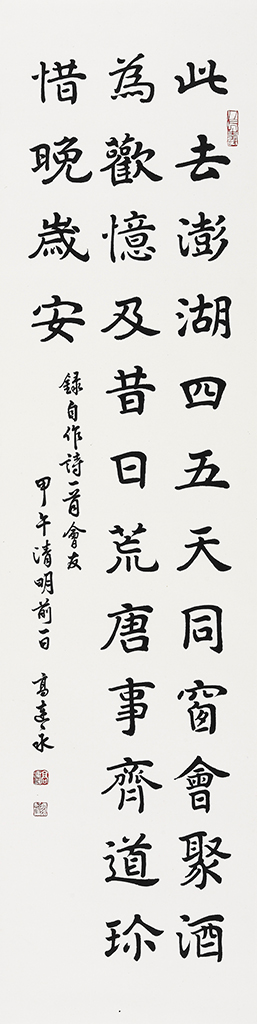 此去澎湖四五天同窗會聚酒
為歡憶及昔日荒唐事齊道珎
惜晚歲安
錄自作詩一首會友
甲午清明前一日 高達永